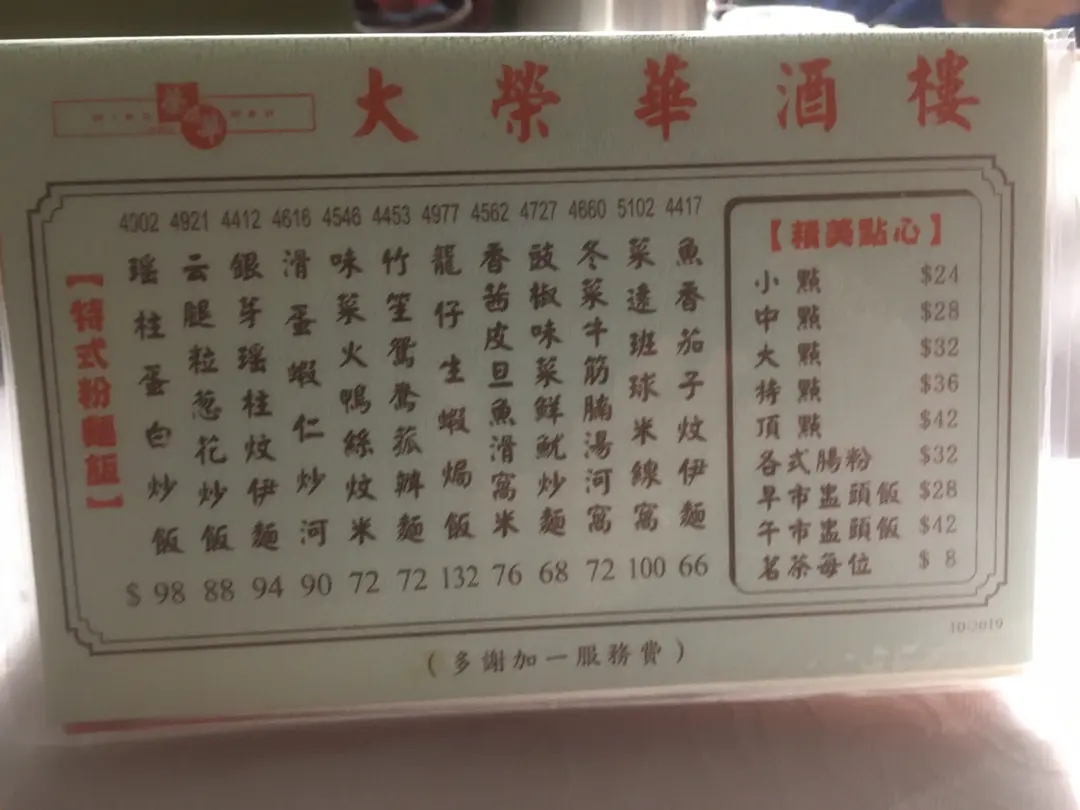 大榮華酒樓
【特式粉麵飯】
4902 瑤柱蛋白炒飯 $98
4921 云腿粒葱花炒飯 88
4412 銀芽瑶柱炆伊麵 94
4616 滑蛋蝦仁炒河 90
4546 味菜火鴨絲炆米 72
4453 竹笙鴛鴦菰辦麵 72
4977 龍仔生蝦焗飯 132
4562 香茜皮旦魚滑窩米 76
4727 豉椒味菜鮮魷炒麵 68
4660 冬菜牛筋腩湯河窩 72
5102 菜遠班球米線窩 100
4417 魚香茄子炆伊麵 66
【精美點心】
小點 $24
中點 $28
大點 $32
特點 $36
頂點 $42
各式腸粉 $32
早市盅頭飯 $28
午市盅頭飯 $42
茗茶每位 $ 8
10/2019
(多謝加一服務費)